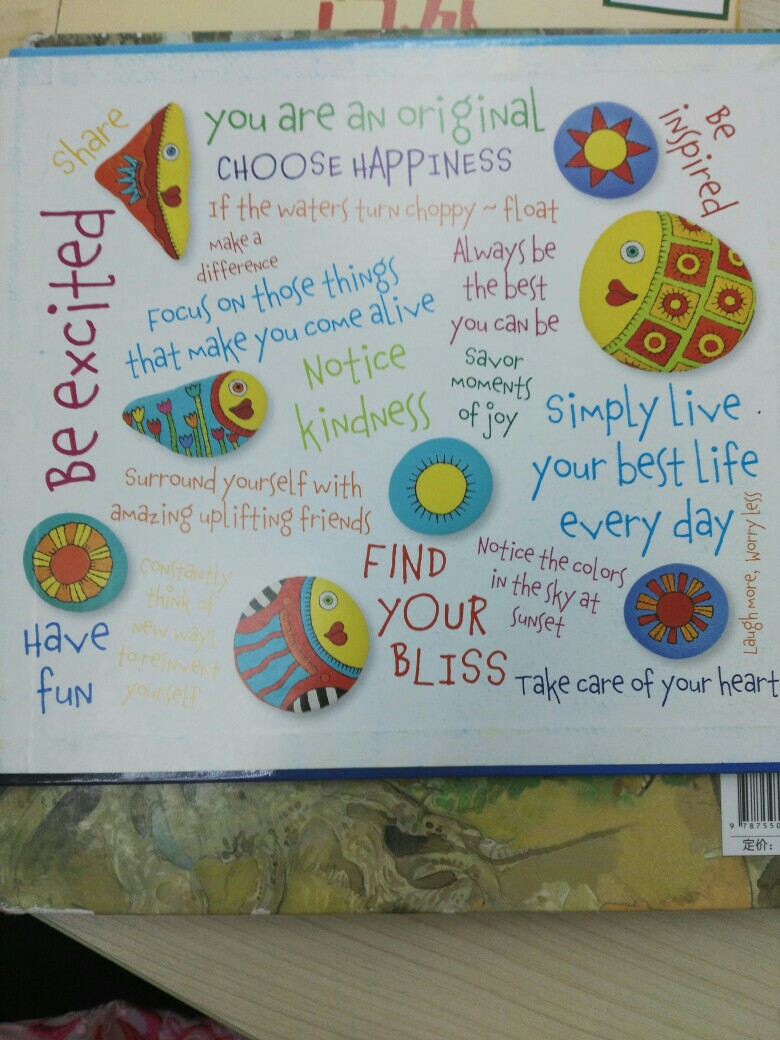 门外
share
you are an original
CHOOSE HAPPINESS
Be
inspired
If the waters turn choppy ~ float
make a
difference
Be excited
Focus on those things
that make you come alive
Always be
the best
you can be
Notice
kindness
Savor
moments
of joy
Simply live
your best life
every day
Surround yourself with
amazing uplifting friends
Laugh more, worry less
constantly
think of
new ways
to reinvent
yourself
FIND
YOUR
BLISS
Notice the colors
in the sky at
sunset
Have
fun
Take care of your heart
9 787550
定价: